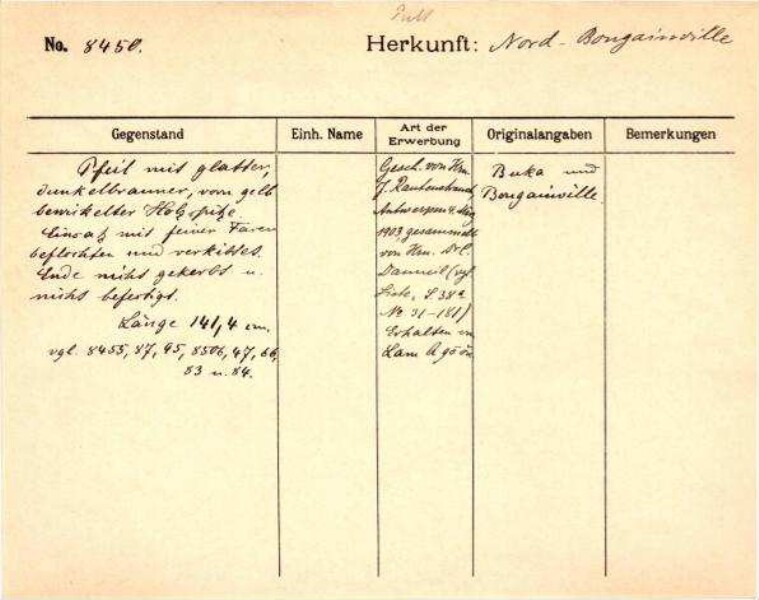 No. 8450.
Herkunft: Nord-Bougainville
Gegenstand
Einh. Name
Art der Erwerbung
Originalangaben
Bemerkungen
Pfeil mit glatter,
dunkelbrauner, vorn gelb
bewickelter Holzspitze.
Einsatz mit feiner Faser
beflochten und verkittet.
Ende nicht gekerbt u.
nicht befestigt.
Länge 141,4 cm.
vgl. 8455, 87, 95, 8506, 47, 66,
83 u. 84.
Gesch. von Hrn.
J. Rautenstrauch,
Antwerpen 4. Mrz
1903 gesammelt
von Hrn. Dr.
(vgl.
Liste, S. 38a
No 31-181)
Erhalten in
Buka und
Bougainville.